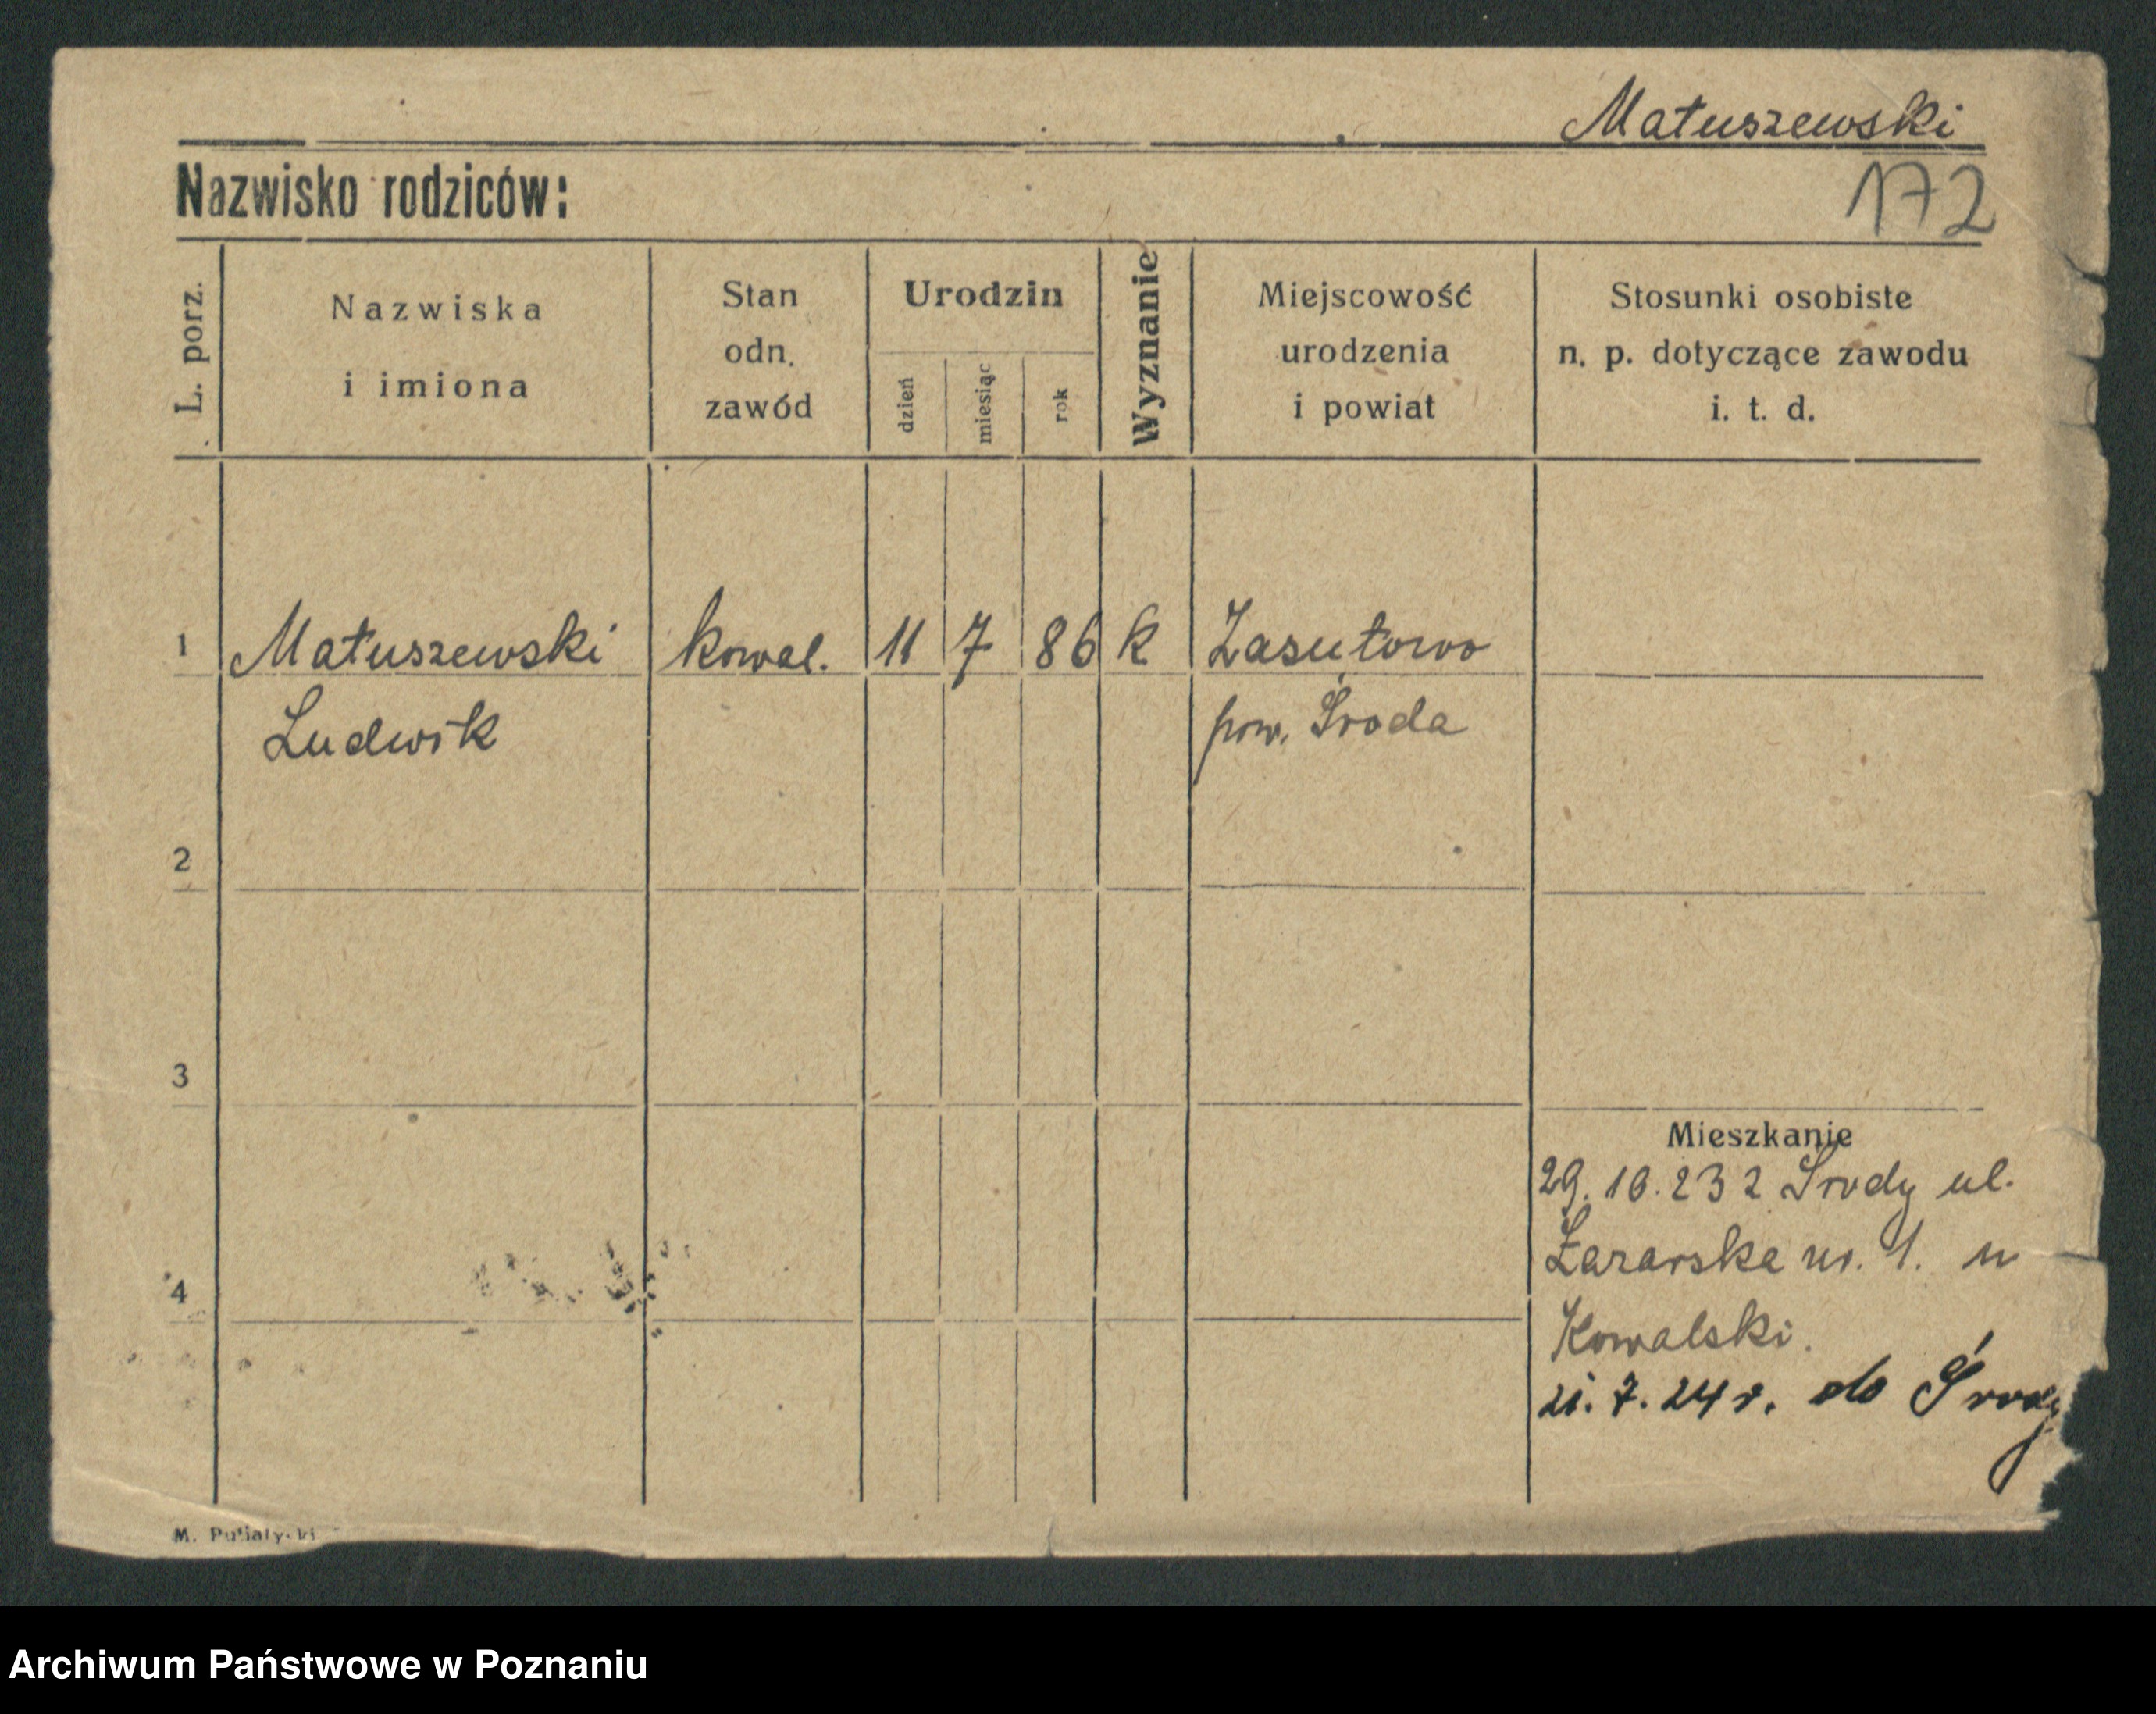 Matuszewski
Nazwisko rodziców:
172
L. porz.
Nazwiska
i imiona
Stan
odn.
zawód
Urodzin
dzień
miesiąc
rok
Wyznanie
Miejscowość
urodzenia
i powiat
Stosunki osobiste
n. p. dotyczące zawodu
i. t. d.
1 Matuszewski kowal. 11 7 86 k Zasutowo
Ludwik pow. Środa
2
3
Mieszkanie
29. 10. 23 z Środy ul.
nr. 1. u
4
Kowalski.
21. 7. 24 r. do Środy
M.
Archiwum Państwowe w Poznaniu